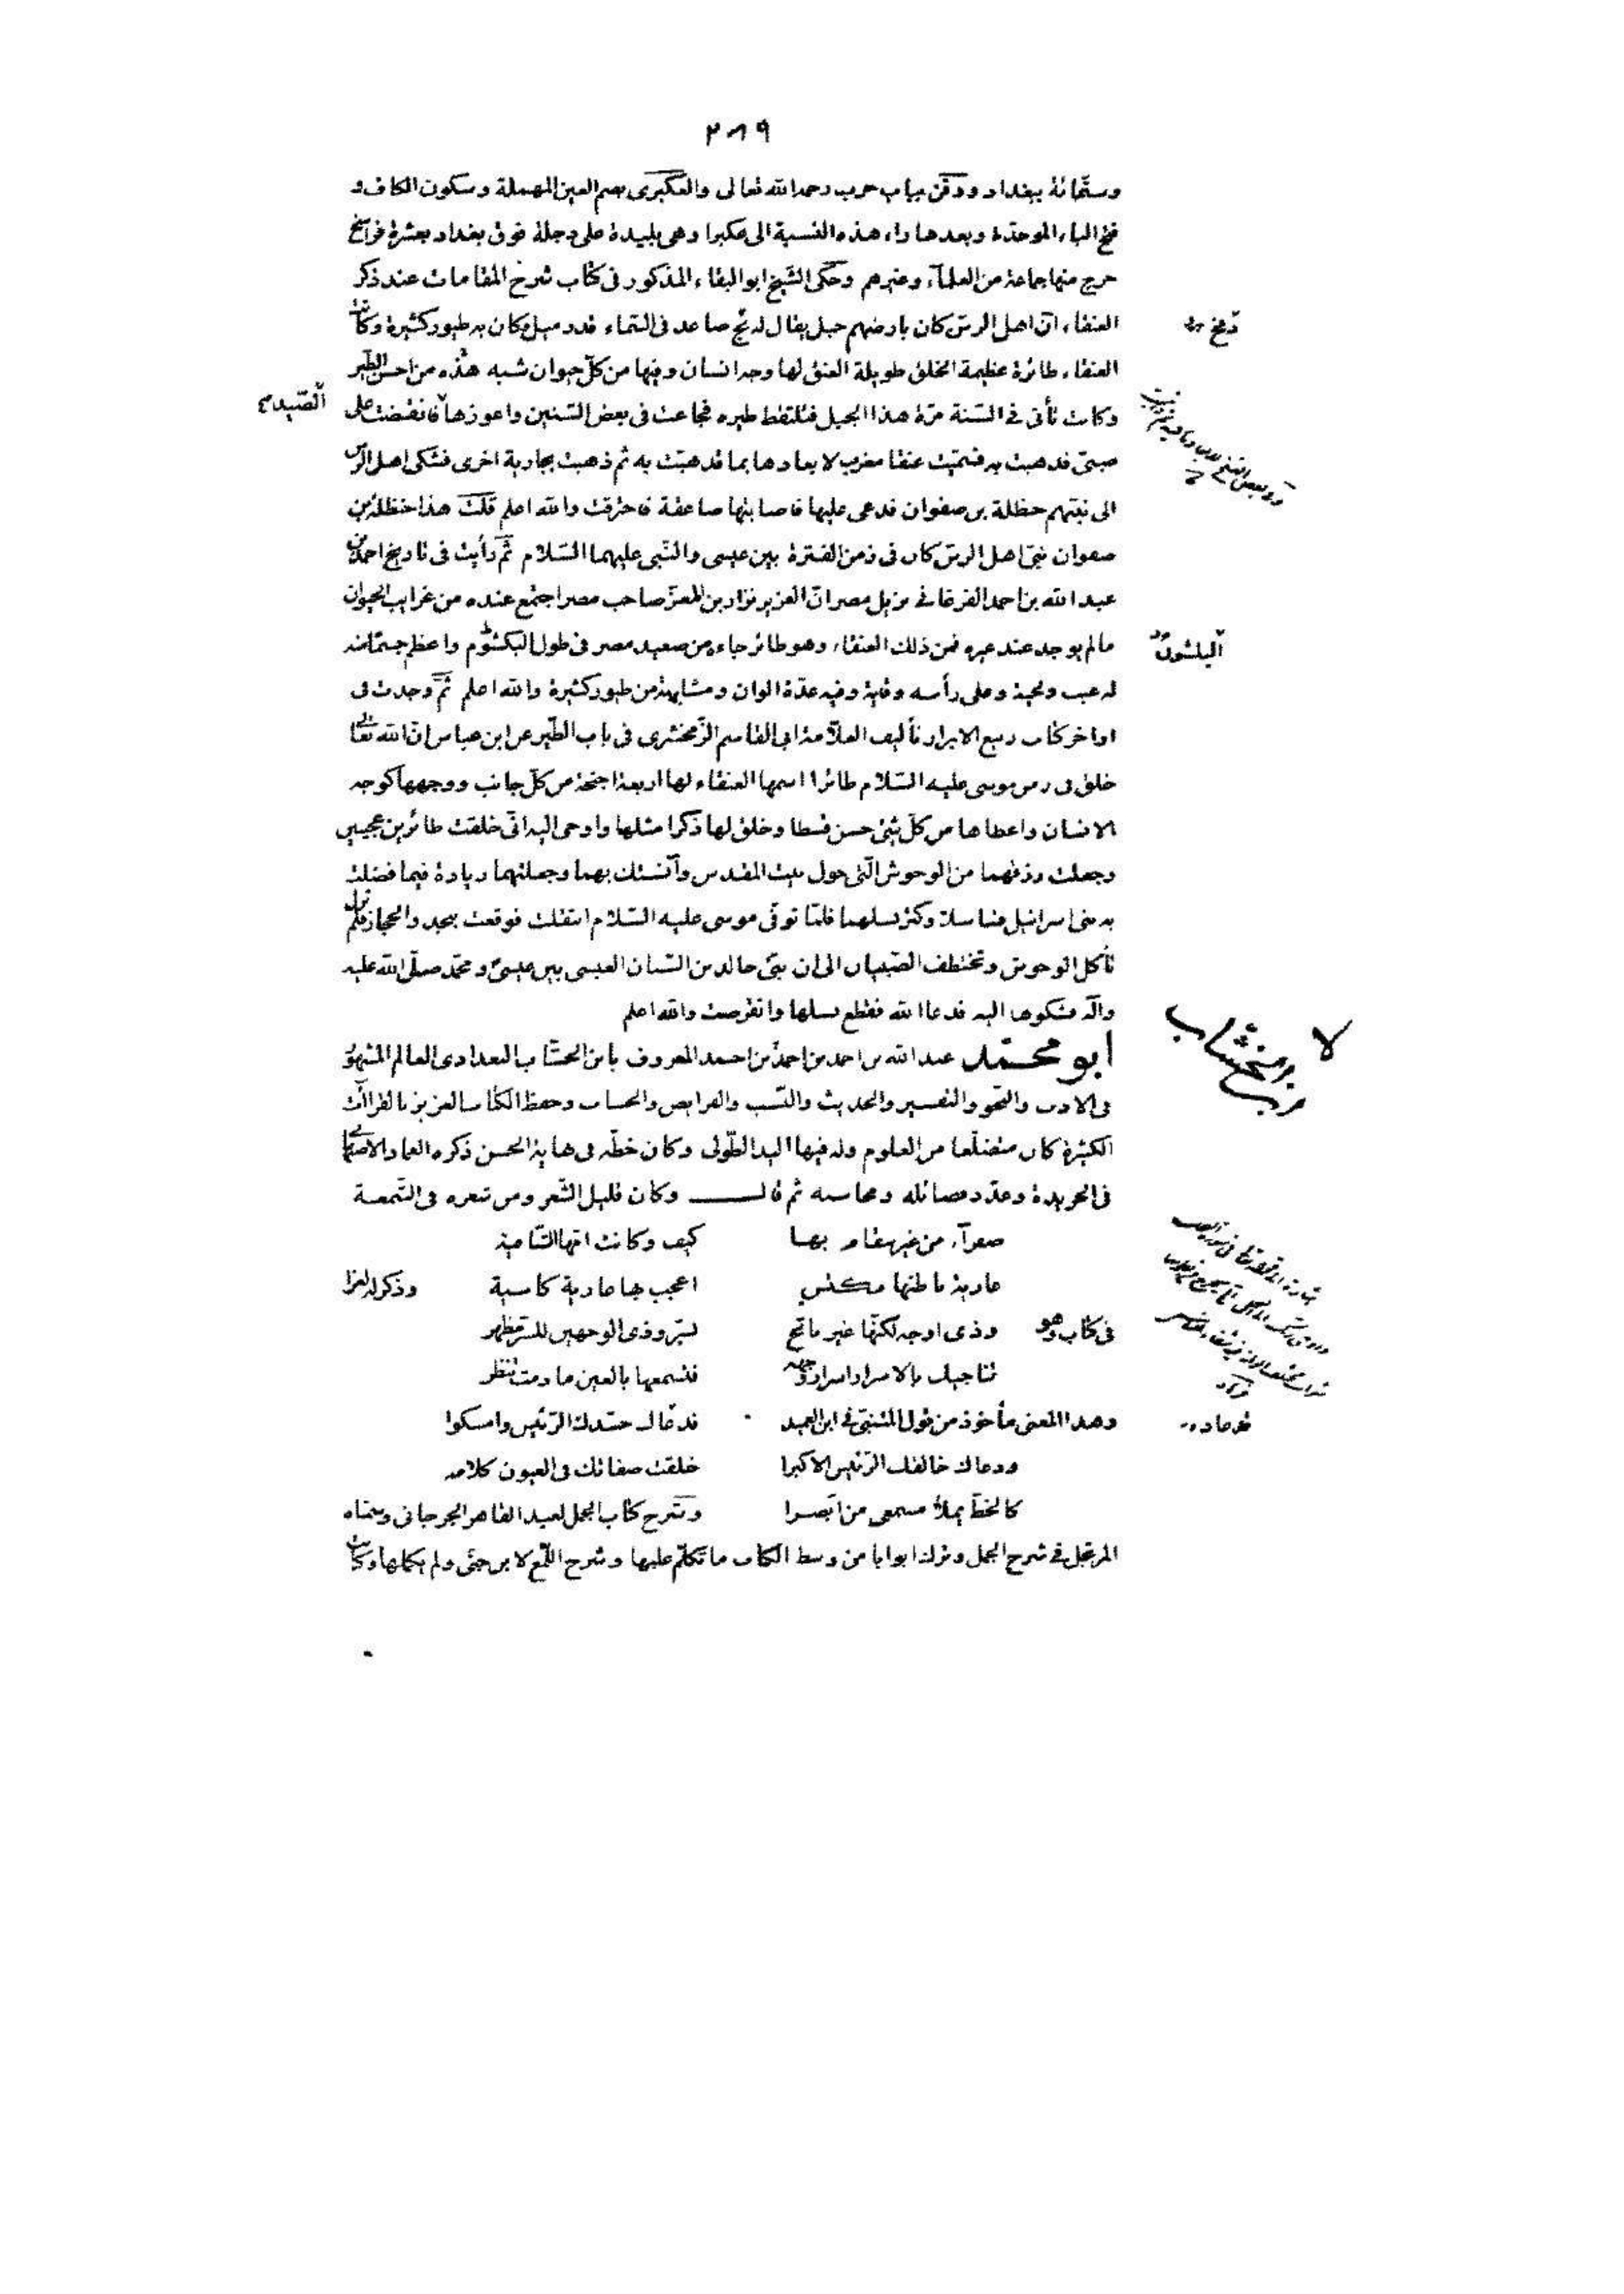 ٢٨٩
وستمائة ببغداد ودفن بباب حرب رحمه الله تعالى والعكبرى بضم العين المهملة وسكون الكاف و
فتح الباء الموحدة وبعدها راء هذه النسبة الى عكبرا وهى بليدة على دجلة فوق بغداد بعشرة فراسخ
خرج منها جماعة من العلمآء وغيرهم وحكى الشيخ ابو البقاء المذكور فى كتاب شرح المقامات عند ذكر
العنقاء انّ اهل الرسّ كان بارضهم جبل يقال له صاعد فى السّماء قدر ميل وكان به طيور كثيرة وكانت
دمخ
العنقاء طائرة عظيمة الخلق طويلة العنق لها وجه انسان وفيها من كلّ حيوان شبه من احسن الطّير
وكانت تأتى فى السّنة مرّة هذا الجبل فتلتقط طيره فجاعت فى بعض السّنين واعوزها فانقضت على
الصّيد
صبىّ فذهبت به فسمّيت عنقا مغرب لابعادها بما تذهب به ثم ذهبت بجارية اخرى فشكى اهل الرّس
الى نبيّهم حنظلة بن صفوان فدعى عليها فاصابتها صاعقة فاحترقت والله اعلم قلت هذا حنظلة بن
صفوان نبىّ اهل الرسّ كان فى زمن الفترة بين عيسى والنّبى عليهما السّلام ثمّ رأيت فى تاريخ احمد بن
عبد الله بن احمد الفرغانى نزيل مصر انّ العزيز نزار بن المعزّ صاحب مصر اجتمع عنده من غرايب الحيوان
مالم يوجد عند غيره فمن ذلك العنقاء وهو طائر جاءه من صعيد مصر فى طول واعظم جسمًا منه
البلشون
له غبب ولحية وعلى رأسه وقاية وفيه عدّة الوان ومشابهة من طيور كثيرة والله اعلم ثمّ وجدت فى
اواخر كتاب ربيع الابرار تأليف العلّامة ابى القاسم الزّمخشرى فى باب الطّير عن ابن عباس انّ الله تعالى
خلق فى زمن موسى عليه السّلام طائرا اسمها العنقاء لها اربعة اجنحة من كلّ جانب ووجهها كوجه
الانسان واعطاها من كلّ شئ حسن قسطا وخلق لها ذكرا مثلها واوحى اليه انّى خلقت طائرين عجيبين
وجعلت رزقهما من الوحوش الّتى حول بيت المقدس وآنستك بهما وجعلتهما زيادة فيما فضلت
به بنى اسرائيل فتناسلا وكثر نسلهما فلمّا توفّى موسى عليه السّلام انتقلت فوقعت بنجد والحجاز فلم تزل
تأكل الوحوش وتختطف الصّبيان الى ان نبّئ خالد بن السّنان العبسى بين عيسى ومحمّد صلّى الله عليه
وآله فشكوها اليه فدعا الله فقطع نسلها وانقرضت والله اعلم
ابن الخشّاب
ابو محمّد عبد الله بن احمد بن احمد بن احمد المعروف بابن الخشّاب البغدادى العالم المشهور
فى الادب والنّحو والتفسير والحديث والنّسب والفرايض والحساب وحفظ الكتاب العزيز بالقرائات
الكثيرة كان متضلّعا من العلوم وله فيها اليد الطّولى وكان خطّه فى نهاية الحسن ذكره العماد الاصبهانى
فى الخريدة وعدّد فضائله ومحاسنه ثم قال وكان قليل الشّعر ومن شعره فى الشّمعة
صفرآء من غير سقام بها كيف وكانت امّها الشّافية
عارية باطنها مكتس اعجب بها عارية كاسية وذكر له لغزا
فى كتاب وهو وذى اوجه لكنّها غير بائح بسرّ وذى الوجهين للسّر مظهر
تناجيك بالاسرار اسرار وجهه فتسمعها بالعين ما دمت تنظر
وهذا المعنى مأخوذ من قول المتنبّى فى ابن العميد فدعاك حسّدك الرّئيس وامسكوا
ودعاك خالقك الرّئيس الاكبرا خلقت صفاتك فى العيون كلامه
كالخطّ يملأ مسمعى من ابصرا وشرح كتاب الجمل لعبد القاهر الجرجانى وسمّاه
المرتجل فى شرح الجمل وترك ابوابا من وسط الكتاب ما تكلّم عليها وشرح اللّمع لابن جنّى ولم يكملها وكانت